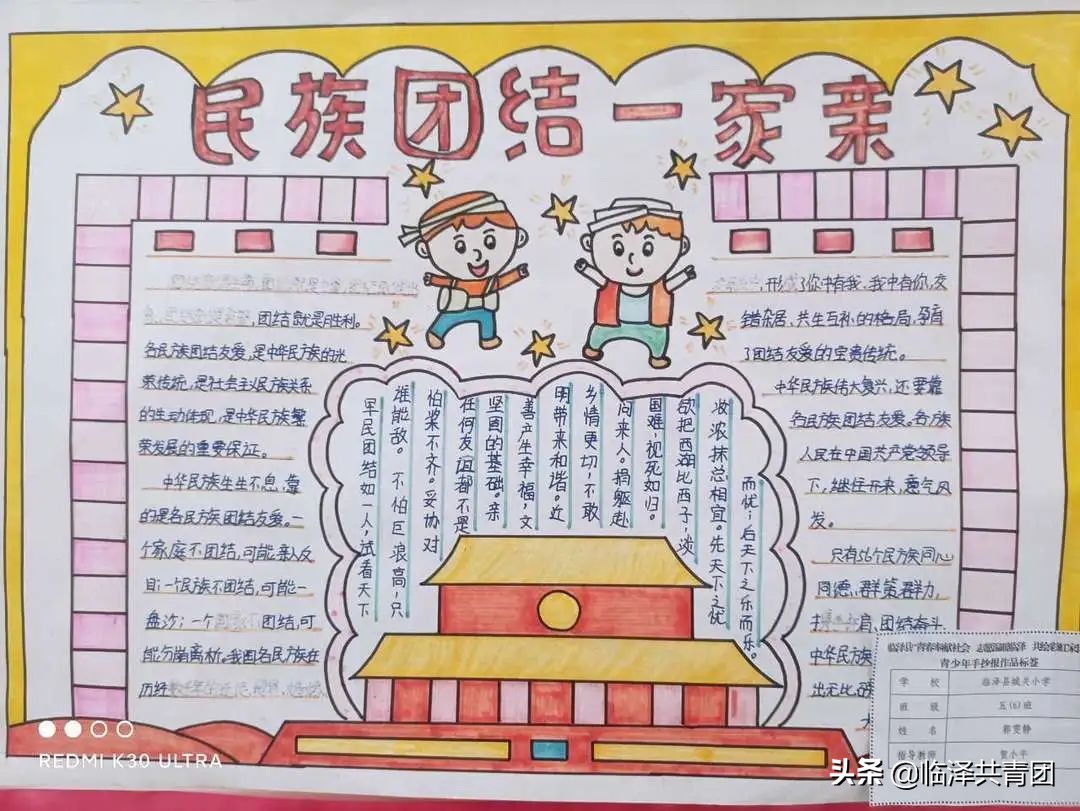 民族团结一家亲
团结就是胜利。
各民族团结友爱,是中华民族的光
荣传统,是社会主义民族关系
的生动体现,是中华民族繁
荣发展的重要保证。
中华民族生生不息,靠
的是各民族团结友爱。一
个家庭不团结,可能亲人反
目;一个民族不团结,可能一
盘沙;一个国家不团结,可
能分崩离析。我国各民族在
历经
军民团结如一人,试看天下
谁能敌。不怕巨浪高,只
怕桨不齐。妥协对
任何友谊都不是
坚固的基础。亲
善产生幸福,文
明带来和谐。近
乡情更切,不敢
问来人。捐躯赴
国难,视死如归。
欲把西湖比西子,淡
妆浓抹总相宜。先天下之忧
而忧;后天下之乐而乐。
形成了你中有我、我中有你,交
错杂居、共生互补的格局,孕育
了团结友爱的宝贵传统。
中华民族伟大复兴,还要靠
各民族团结友爱。各族
人民在中国共产党领导
下,继往开来,意气风
发。
只有56个民族同心
同德、群策群力,
肩、团结奋斗,
中华民族
出无比
青少年手抄报作品标签
学 校 临泽县城关小学
班 级 五(6)班
姓 名 郭雯静
指导教师
REDMI K30 ULTRA
头条 @临泽共青团